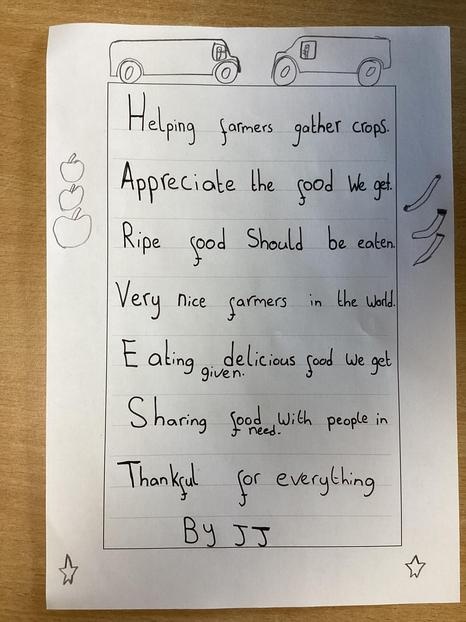 Helping farmers gather crops.
Appreciate the food We get.
Ripe food Should be eaten.
Very nice farmers in the world.
Eating delicious food We get
given.
Sharing food With people in
need.
Thankful for everything
By JJ